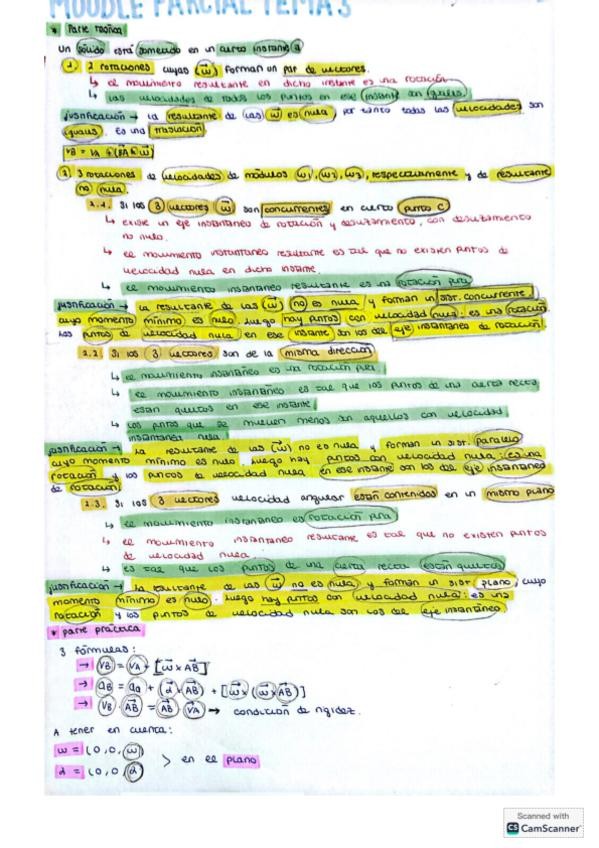 MOODLE PARCIAL TEMA 3
* Parte teórica
Un sólido está sometido en un cierto instante a
1. 2 rotaciones cuyas (w⃗) forman un par de vectores.
↳ el movimiento resultante en dicho instante es una rotación
↳ las velocidades de todos los puntos en ese instante son iguales.
justificación → la resultante de las w⃗ es nula, por tanto todas las velocidades son
iguales. Es una traslación
VB = VA + (BA ∧ w⃗)
2. 3 rotaciones de velocidades de módulos w1, w2, w3, respectivamente y de resultante
no nula.
2.1. Si los 3 vectores w⃗ son concurrentes en cierto punto C
↳ existe un eje instantáneo de rotación y deslizamiento, con deslizamiento
no nulo.
↳ el movimiento instantáneo resultante es tal que no existen puntos de
velocidad nula en dicho instante.
↳ el movimiento instantáneo resultante es una rotación pura
justificación → la resultante de las w⃗ no es nula y forman un sist. concurrente
cuyo momento mínimo es nulo, luego hay puntos con velocidad nula: es una rotación
Los puntos de velocidad nula en ese instante son los del eje instantáneo de rotación.
2.2 Si los 3 vectores son de la misma dirección
↳ el movimiento instantáneo es una rotación pura
↳ el movimiento instantáneo es tal que los puntos de una cierta recta
están quietos en ese instante.
↳ Los puntos que se mueven menos son aquellos con velocidad
instantanea nula.
justificación → la resultante de las (w⃗) no es nula y forman un sist. paralelo
cuyo momento mínimo es nulo. Luego hay puntos con velocidad nula: es una
rotación y los puntos de velocidad nula en ese instante son los del eje instantáneo
de rotación.
2.3. Si los 3 vectores velocidad angular están contenidos en un mismo plano
↳ el movimiento instantaneo es rotación pura
↳ el movimiento instantaneo resultante es tal que no existen puntos
de velocidad nula.
↳ es tal que los puntos de una cierta recta están quietos
justificación → la resultante de las w⃗ no es nula y forman un sist. plano, cuyo
momento mínimo es nulo. Luego hay puntos con velocidad nula: es una
rotación y los puntos de velocidad nula son los del eje instantáneo
* parte práctica
3 fórmulas:
→ VB = VA + [w⃗ x AB⃗]
→ aB = aA + (α⃗ x AB⃗) + [w⃗ x (w⃗ x AB⃗)]
→ VB · AB⃗ = AB⃗ · VA⃗ → condición de rigidez.
A tener en cuenta:
w = (0,0,w)
> en el plano
α = (0,0,α)
Scanned with
CS CamScanner